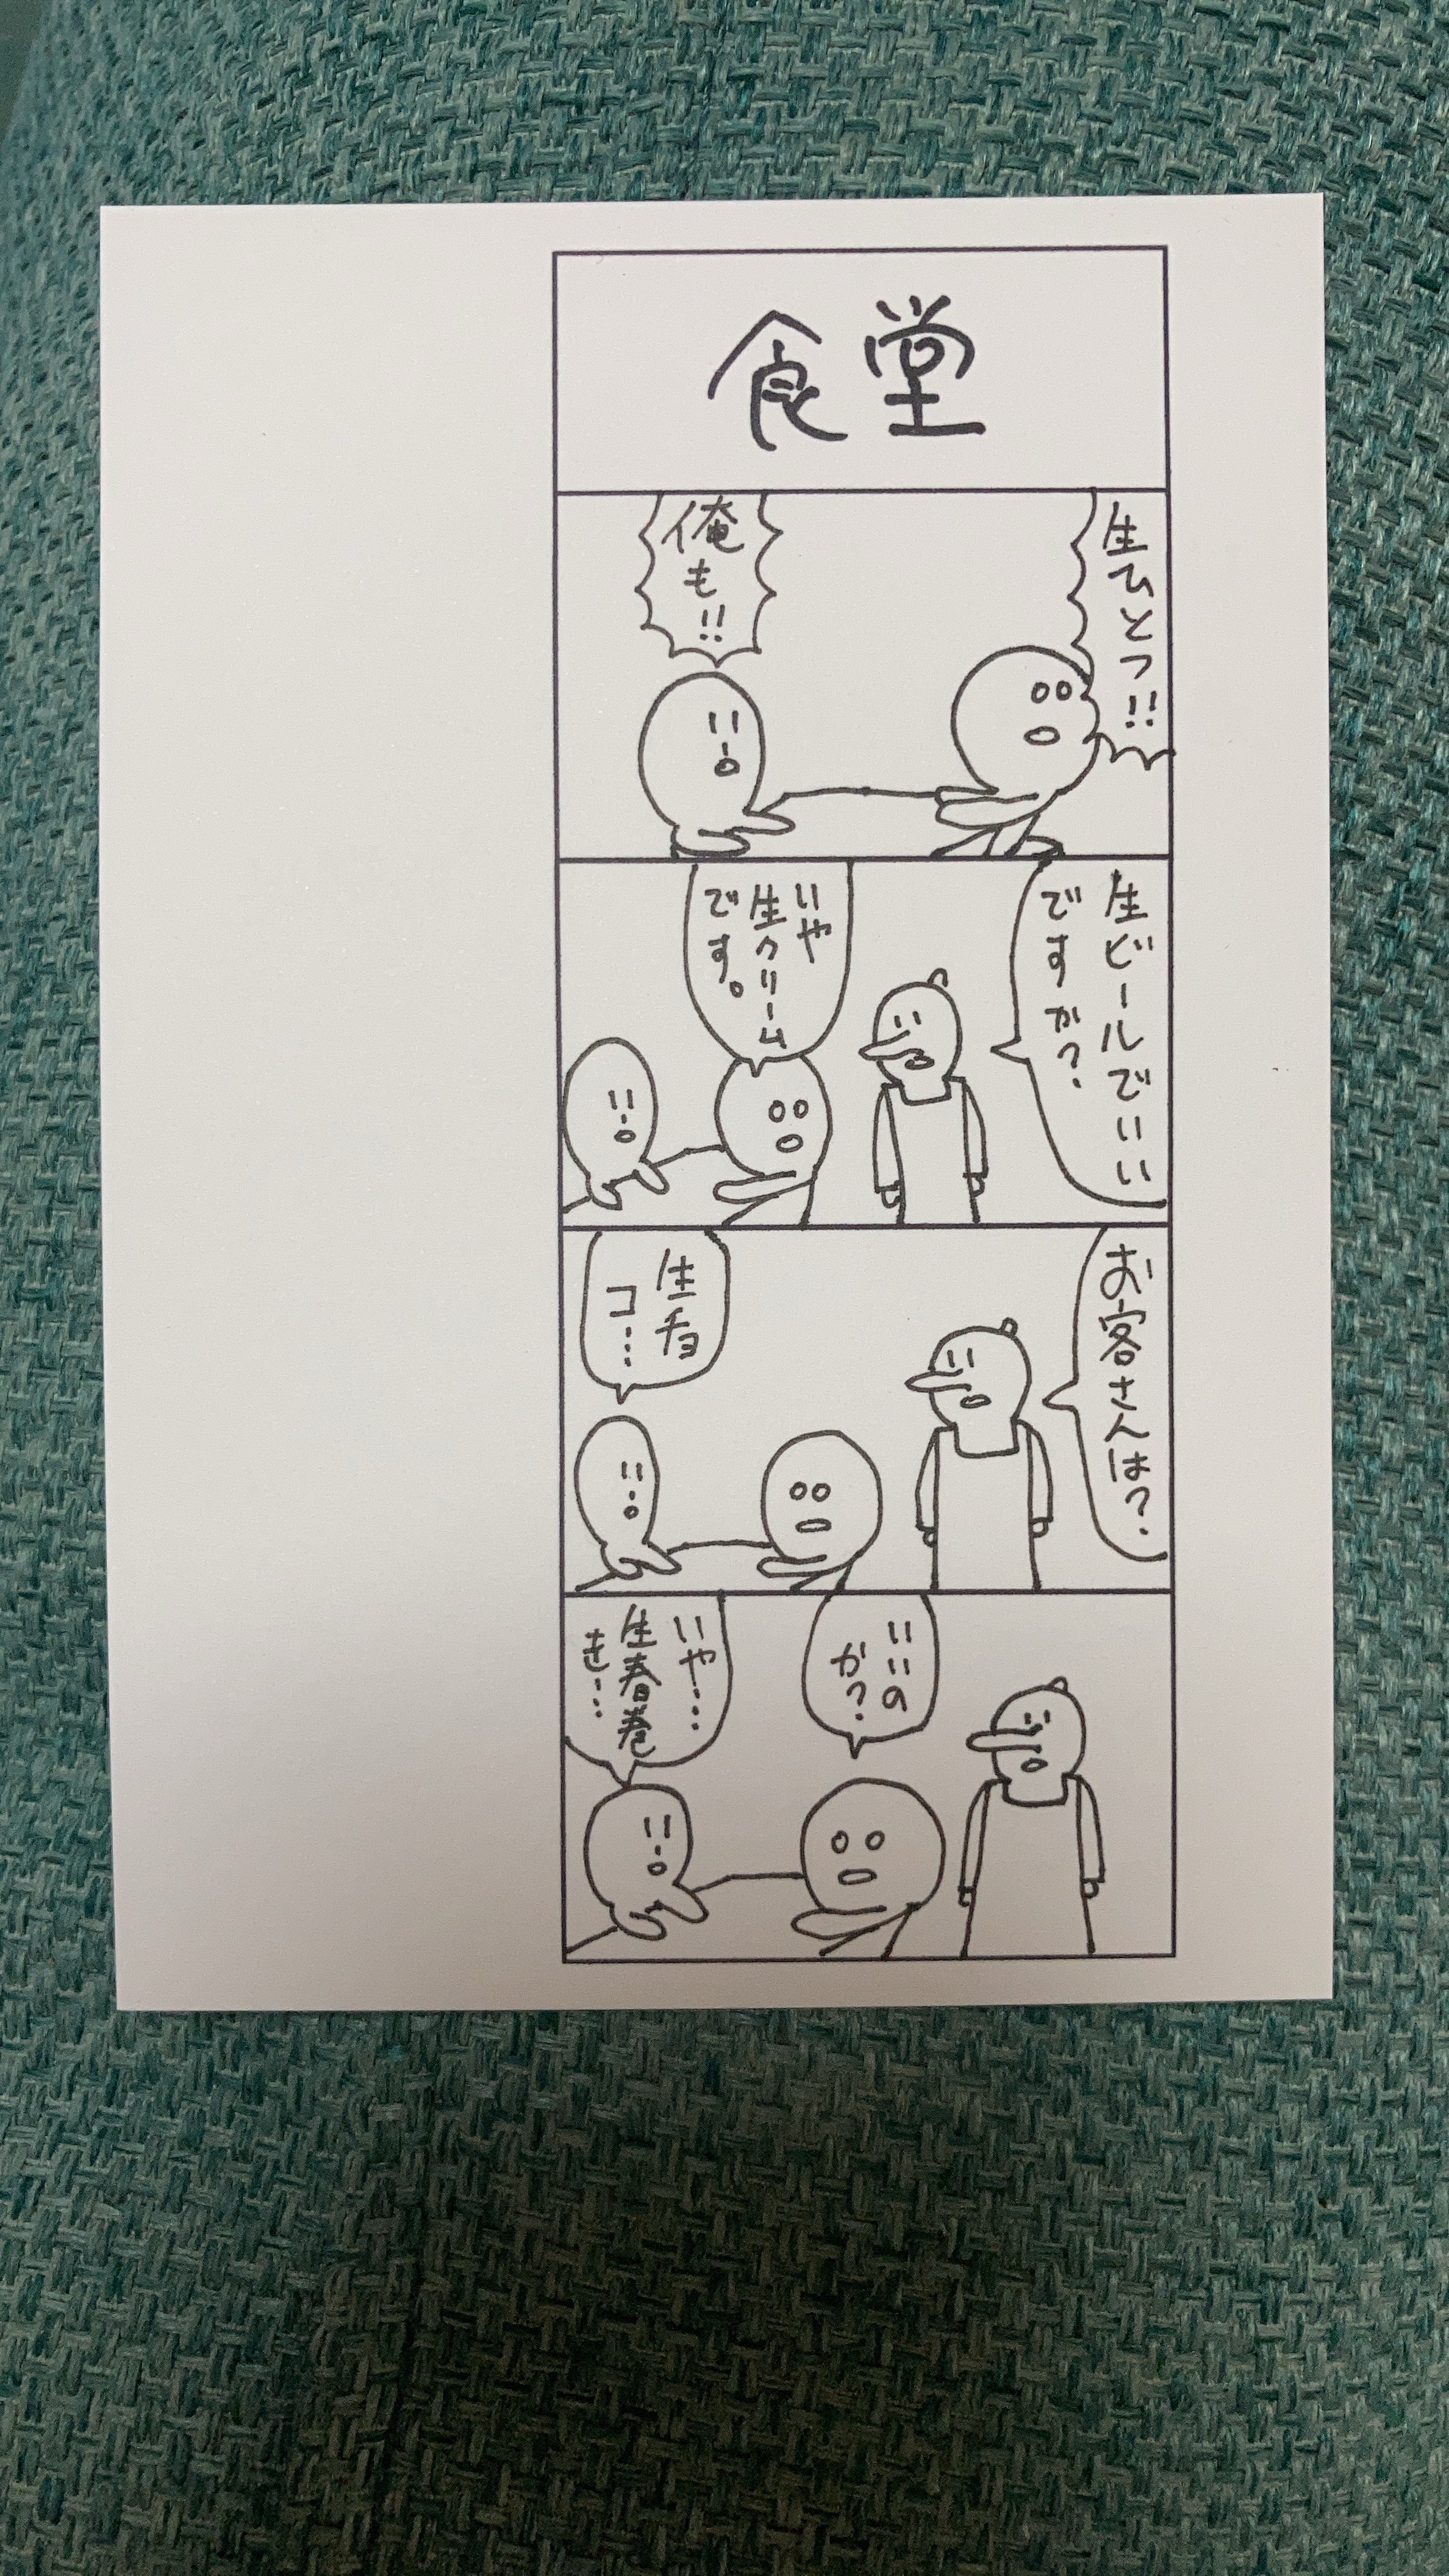 食堂
生ひとつ!!
俺も!!
生ビールでいい
ですか?
いや
生クリーム
です。
お客さんは?
生チョ
コ…
いいの
か?
いや…
生春巻
き…